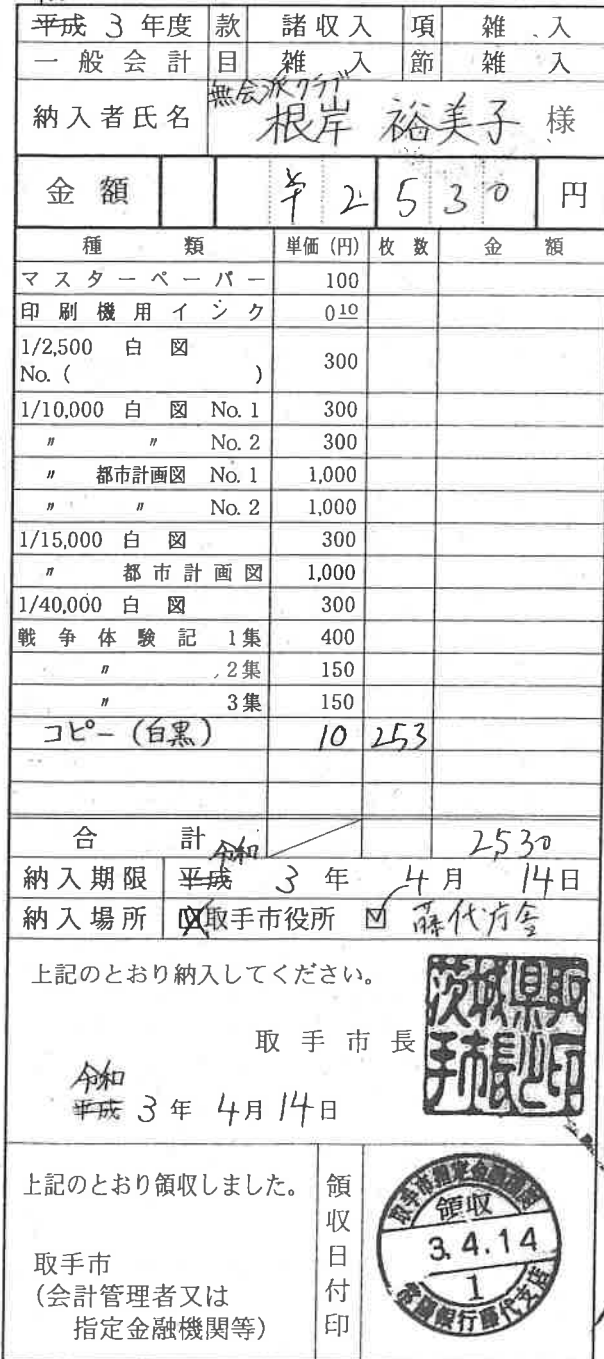 平成 3 年度 款 諸収入 項 雑入
一般会計 目 雑入 節 雑入
無会派クラブ
納入者氏名 根岸 裕美子 様
金額 ¥2530 円
種類 単価(円) 枚数 金額
マスターペーパー 100
印刷機用インク 010
1/2,500 白図 300
No.( )
1/10,000 白図 No.1 300
〃 〃 No.2 300
〃 都市計画図 No.1 1,000
〃 〃 No.2 1,000
1/15,000 白図 300
〃 都市計画図 1,000
1/40,000 白図 300
戦争体験記 1集 400
〃 2集 150
〃 3集 150
コピー(白黒) 10 253
合計 2,530
令和
納入期限 平成 3 年 4 月 14 日
納入場所 取手市役所 ☑ 藤代庁舎
上記のとおり納入してください。
取手市長
茨城県取手市長之印
令和
平成 3 年 4 月 14 日
上記のとおり領収しました。
領収日付印
取手市
(会計管理者又は
指定金融機関等)
取手市指定金融機関
領収
3.4.14
1
常陽銀行藤代支店